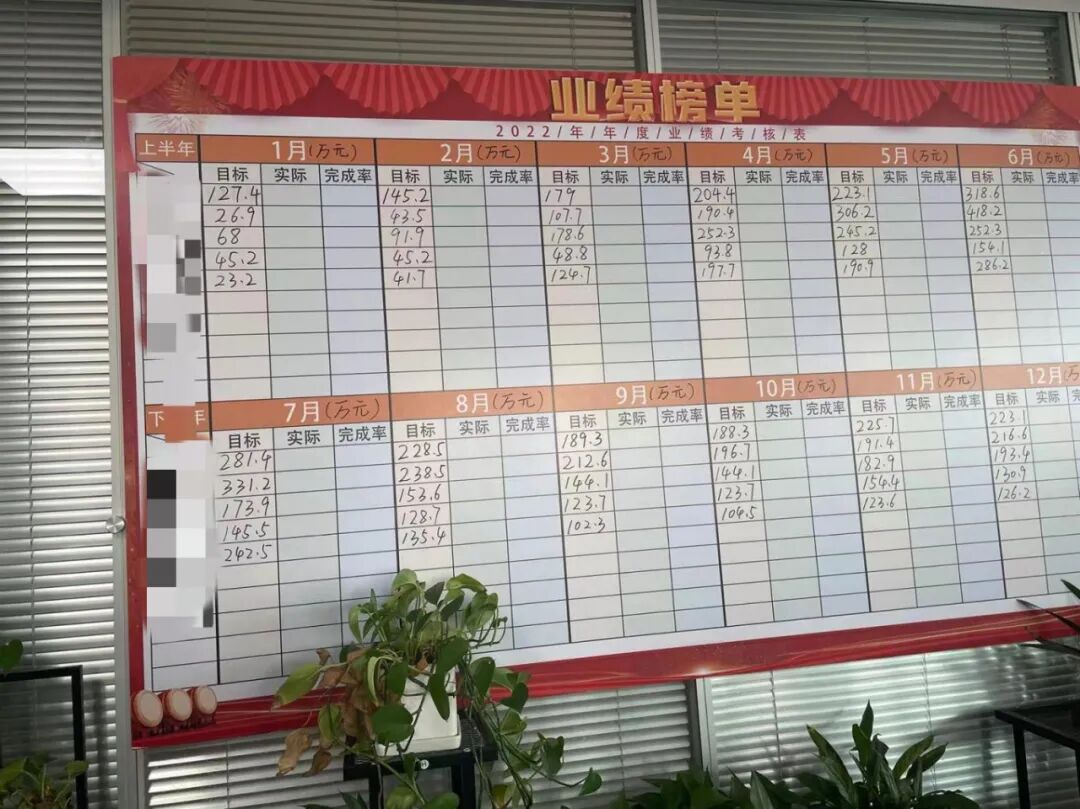 业绩榜单
2022/年/年/度/业/绩/考/核/表
上半年 1月(万元) 2月(万元) 3月(万元) 4月(万元) 5月(万元) 6月(万元)
目标 实际 完成率 目标 实际 完成率 目标 实际 完成率 目标 实际 完成率 目标 实际 完成率 目标 实际 完成率
127.4 145.2 179 204.4 223.1 318.6
26.9 43.5 107.7 190.4 306.2 418.2
68 91.9 178.6 252.3 245.2 252.3
45.2 45.2 48.8 93.8 128 154.1
23.2 41.7 124.7 197.7 190.9 286.2
下 年 7月(万元) 8月(万元) 9月(万元) 10月(万元) 11月(万元) 12月(万
目标 实际 完成率 目标 实际 完成率 目标 实际 完成率 目标 实际 完成率 目标 实际 完成率 目标 实际
281.4 228.5 189.3 188.3 225.7 223.1
331.2 238.5 212.6 196.7 191.4 216.6
173.9 153.6 144.1 144.1 182.9 193.4
145.5 128.7 123.7 123.7 154.4 130.9
242.5 135.4 102.3 104.5 123.6 126.2